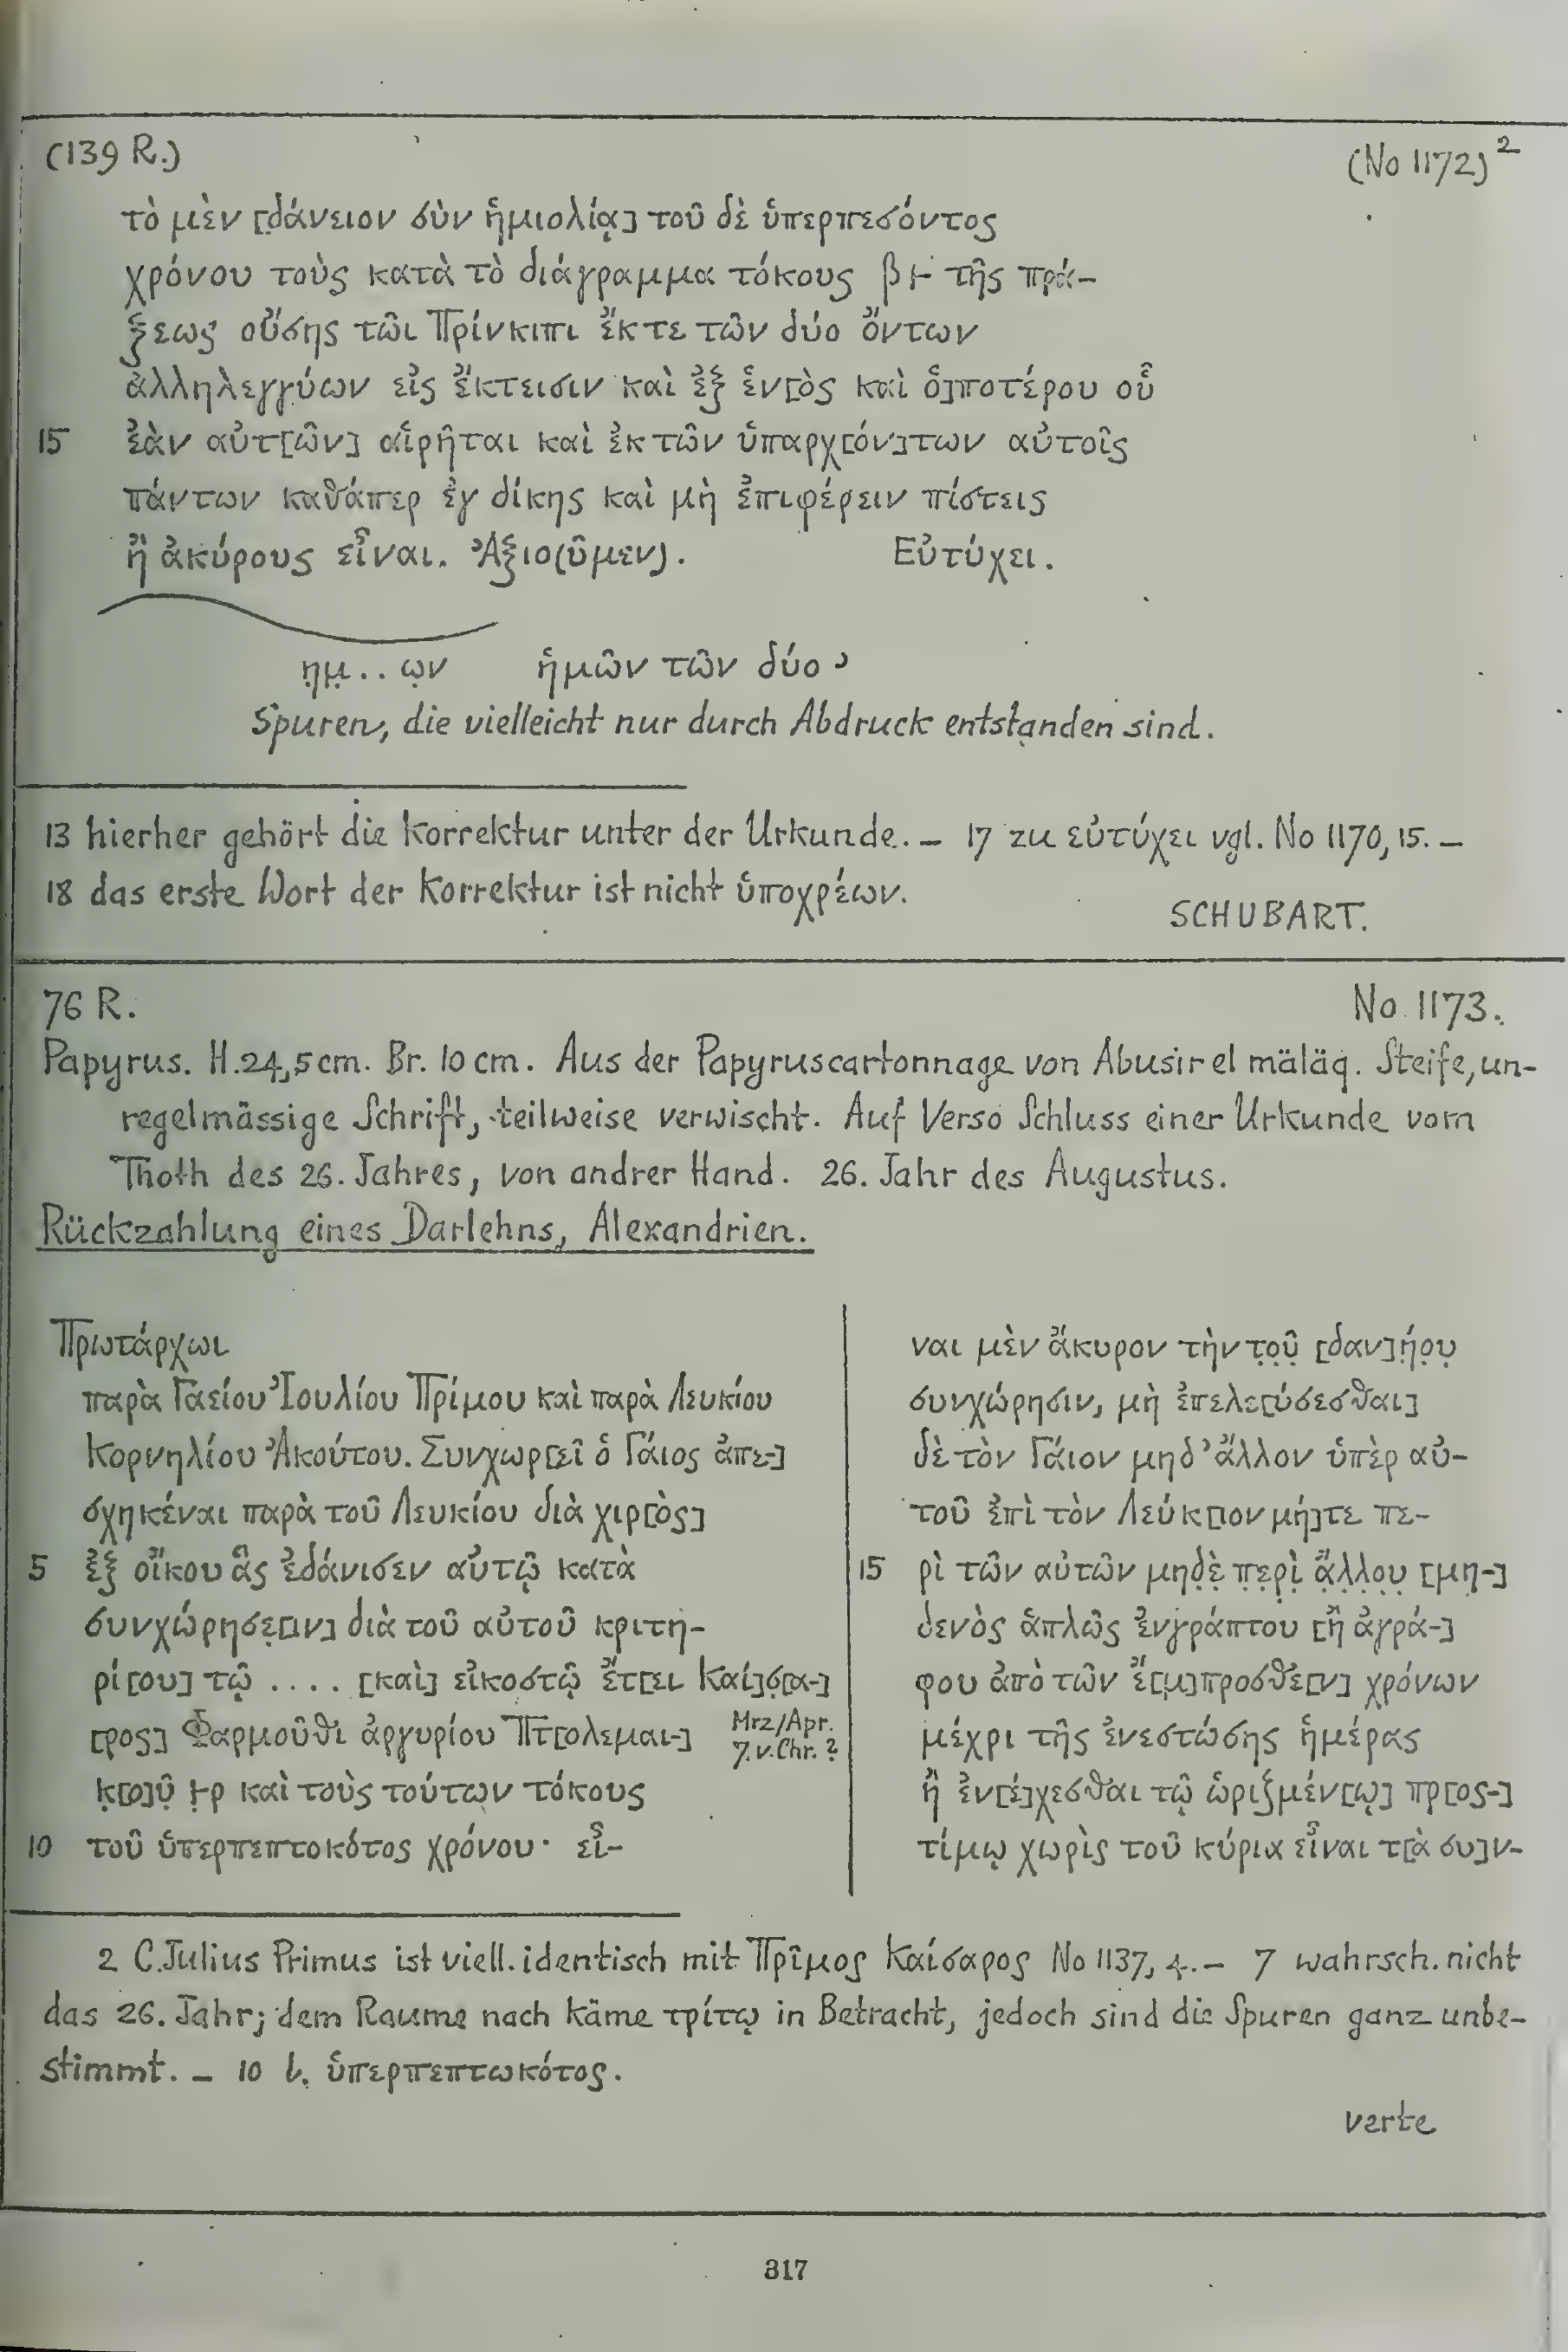 (139 R.) (No 1172)²
τὸ μὲν [δάνειον σὺν ἡμιολίᾳ] τοῦ δὲ ὑπερπεσόντος
χρόνου τοὺς κατὰ τὸ διάγραμμα τόκους β ⊢ τῆς πρά-
ξεως οὔσης τῶι Πρίνκιπι ἔκ τε τῶν δύο ὄντων
ἀλληλεγγύων εἰς ἔκτεισιν καὶ ἐξ ἑν[ὸς καὶ ὁ]ποτέρου οὗ
15 ἐὰν αὐτ[ῶν] αἱρῆται καὶ ἐκ τῶν ὑπαρχ[όν]των αὐτοῖς
πάντων καθάπερ ἐγ δίκης καὶ μὴ ἐπιφέρειν πίστεις
ἢ ἀκύρους εἶναι. Ἀξιο(ῦμεν). Εὐτύχει.
η̣μ̣..ω̣ν ἡμῶν τῶν δύο
Spuren, die vielleicht nur durch Abdruck entstanden sind.
13 hierher gehört die Korrektur unter der Urkunde. – 17 zu εὐτύχει vgl. No 1170, 15. –
18 das erste Wort der Korrektur ist nicht ὑποχρέων.
SCHUBART.
76 R. No 1173.
Papyrus. H. 24,5 cm. Br. 10 cm. Aus der Papyruscartonnage von Abusir el mäläq. Steife, un-
regelmässige Schrift, teilweise verwischt. Auf Verso Schluss einer Urkunde vom
Thoth des 26. Jahres, von andrer Hand. 26. Jahr des Augustus.
Rückzahlung eines Darlehns, Alexandrien.
Πρωτάρχωι
παρὰ Γαείου Ἰουλίου Πρίμου καὶ παρὰ Λευκίου
Κορνηλίου Ἀκούτου. Συνχωρ[εῖ ὁ Γάιος ἀπε-]
σχηκέναι παρὰ τοῦ Λευκίου διὰ χιρ[ὸς]
5 ἐξ οἴκου ἃς ἐδάνισεν αὐτῷ κατὰ
συνχώρησε̣[ιν] διὰ τοῦ αὐτοῦ κριτη-
ρί[ου] τῷ .... [καὶ] εἰκοστῷ ἔτ[ει Καί]σ̣[α-]
[ρος] Φαρμοῦθι ἀργυρίου Πτ[ολεμαι-] Mrz/Apr.
7. v. Chr. ?
κ̣[ο]ῦ̣ ⊢ρ καὶ τοὺς τούτων τόκους
10 τοῦ ὑπερπεπτοκότος χρόνου· εἶ-
ναι μὲν ἄκυρον τὴν τ̣ο̣ῦ̣ [δαν]ή̣ο̣υ̣
συνχώρησιν, μὴ ἐπελε[ύσεσθαι]
δὲ τὸν Γάιον μηδ’ ἄλλον ὑπὲρ αὐ-
τοῦ ἐπὶ τὸν Λεύκ[ιον μή]τε πε-
15 ρὶ τῶν αὐτῶν μηδ̣ὲ̣ π̣ε̣ρ̣ὶ̣ ἄ̣λ̣λ̣ο̣υ̣ [μη-]
δενὸς ἁπλῶς ἐνγράπτου [ἢ ἀγρά-]
φου ἀπὸ τῶν ἔ[μ]προσθε[ν] χρόνων
μέχρι τῆς ἐνεστώσης ἡμέρας
ἢ ἐν[έ]χεσθαι τῷ ὡριζμέν[ῳ] πρ[οσ-]
τίμῳ χωρὶς τοῦ κύρια εἶναι τ[ὰ συ]ν-
2 C. Julius Primus ist viell. identisch mit Πρῖμος Καίσαρος No 1137, 4. – 7 wahrsch. nicht
das 26. Jahr; dem Raume nach käme τρίτῳ in Betracht, jedoch sind die Spuren ganz unbe-
stimmt. – 10 l. ὑπερπεπτωκότος.
verte
317